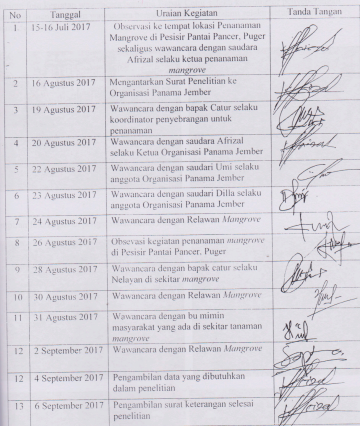 No Tanggal Uraian Kegiatan Tanda Tangan
1 15-16 Juli 2017 Observasi ke tempat lokasi Penanaman
Mangrove di Pesisir Pantai Pancer, Puger
sekaligus wawancara dengan saudara
Afrizal selaku ketua penanaman
mangrove
2 16 Agustus 2017 Mengantarkan Surat Penelitian ke
Organisasi Panama Jember
3 19 Agustus 2017 Wawancara dengan bapak Catur selaku
koordinator penyebrangan untuk
penanaman
4 20 Agustus 2017 Wawancara dengan saudara Afrizal
selaku Ketua Organisasi Panama Jember
5 22 Agustus 2017 Wawancara dengan saudari Umi selaku
anggota Organisasi Panama Jember
6 23 Agustus 2017 Wawancara dengan saudari Dilla selaku
anggota Organisasi Panama Jember
7 24 Agustus 2017 Wawancara dengan Relawan Mangrove
8 26 Agustus 2017 Obsevasi kegiatan penanaman mangrove
di Pesisir Pantai Pancer, Puger
9 28 Agustus 2017 Wawancara dengan bapak catur selaku
Nelayan di sekitar mangrove
10 30 Agustus 2017 Wawancara dengan Relawan Mangrove
11 31 Agustus 2017 Wawancara dengan bu mimin
masyarakat yang ada di sekitar tanaman
mangrove
12 2 September 2017 Wawancara dengan Relawan Mangrove
12 4 September 2017 Pengambilan data yang dibutuhkan
dalam penelitian
13 6 September 2017 Pengambilan surat keterangan selesai
penelitian